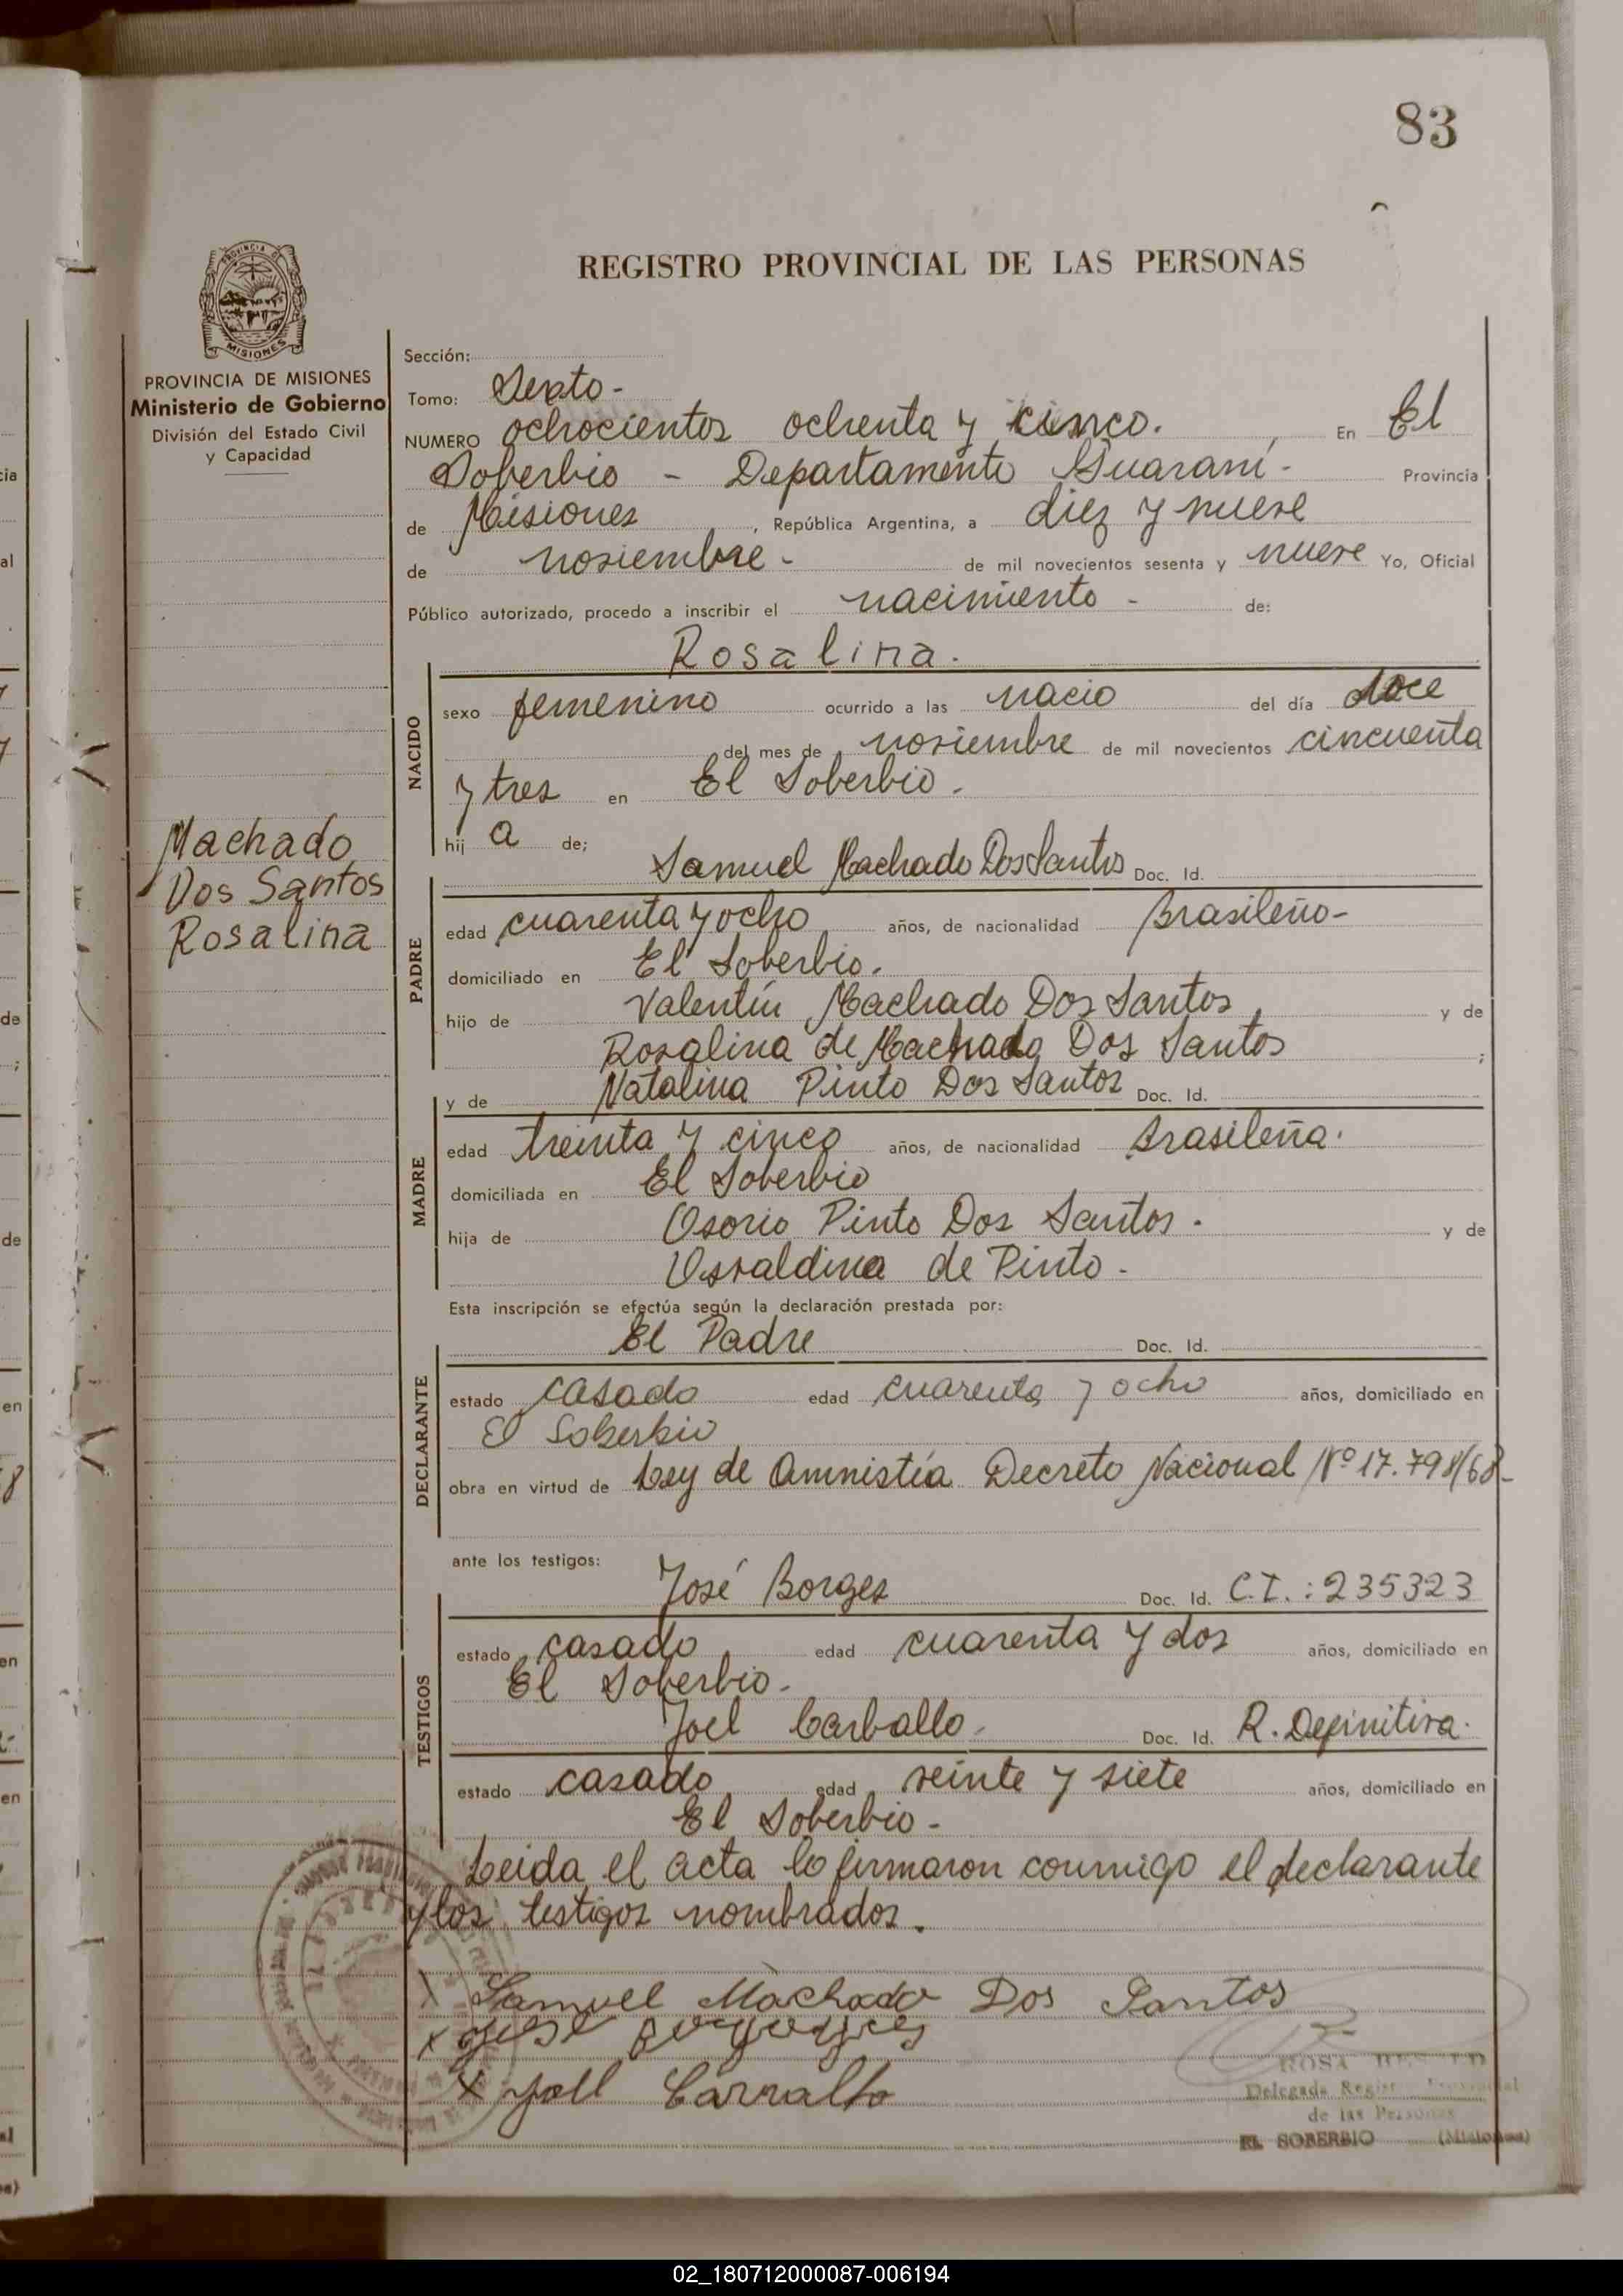 83
REGISTRO PROVINCIAL DE LAS PERSONAS
PROVINCIA DE MISIONES
Ministerio de Gobierno
División del Estado Civil
y Capacidad
Machado
Dos Santos
Rosalina
Sección:
Tomo: Sexto-
NUMERO ochocientos ochenta y cinco. , En El
Soberbio - Departamento Guaraní- Provincia
de Misiones , República Argentina, a diez y nueve
de noviembre- de mil novecientos sesenta y nueve Yo, Oficial
Público autorizado, procedo a inscribir el nacimiento - de:
Rosalina.
NACIDO
sexo femenino ocurrido a las nacio del día doce
del mes de noviembre de mil novecientos cincuenta
y tres en El Soberbio.
hij a de; Samuel Machado Dos Santos Doc. Id.
PADRE
edad cuarenta y ocho años, de nacionalidad Brasileño-
domiciliado en El Soberbio.
hijo de Valentín Machado Dos Santos , y de
Rosalina de Machado Dos Santos ;
y de Natalina Pinto Dos Santos Doc. Id.
MADRE
edad treinta y cinco años, de nacionalidad Brasileña.
domiciliada en El Soberbio
hija de Osorio Pinto Dos Santos. y de
Osvaldina de Pinto-
Esta inscripción se efectúa según la declaración prestada por:
El Padre Doc. Id.
DECLARANTE
estado casado edad cuarenta y ocho años, domiciliado en
El Soberbio
obra en virtud de Ley de Amnistía Decreto Nacional Nº 17.798/68-
ante los testigos:
José Borges Doc. Id. C.I.:235323
TESTIGOS
estado casado edad cuarenta y dos años, domiciliado en
El Soberbio-
Joel Carballo. Doc. Id. R. Definitiva.
estado casado edad veinte y siete años, domiciliado en
El Soberbio-
Leida el acta lo firmaron conmigo el declarante
y los testigos nombrados.
X Samuel Machado Dos Santos
X
X Joll Carvalho
ROSA
Delegada Provincial
de las Personas
EL SOBERBIO (Misiones)
02_180712000087-006194